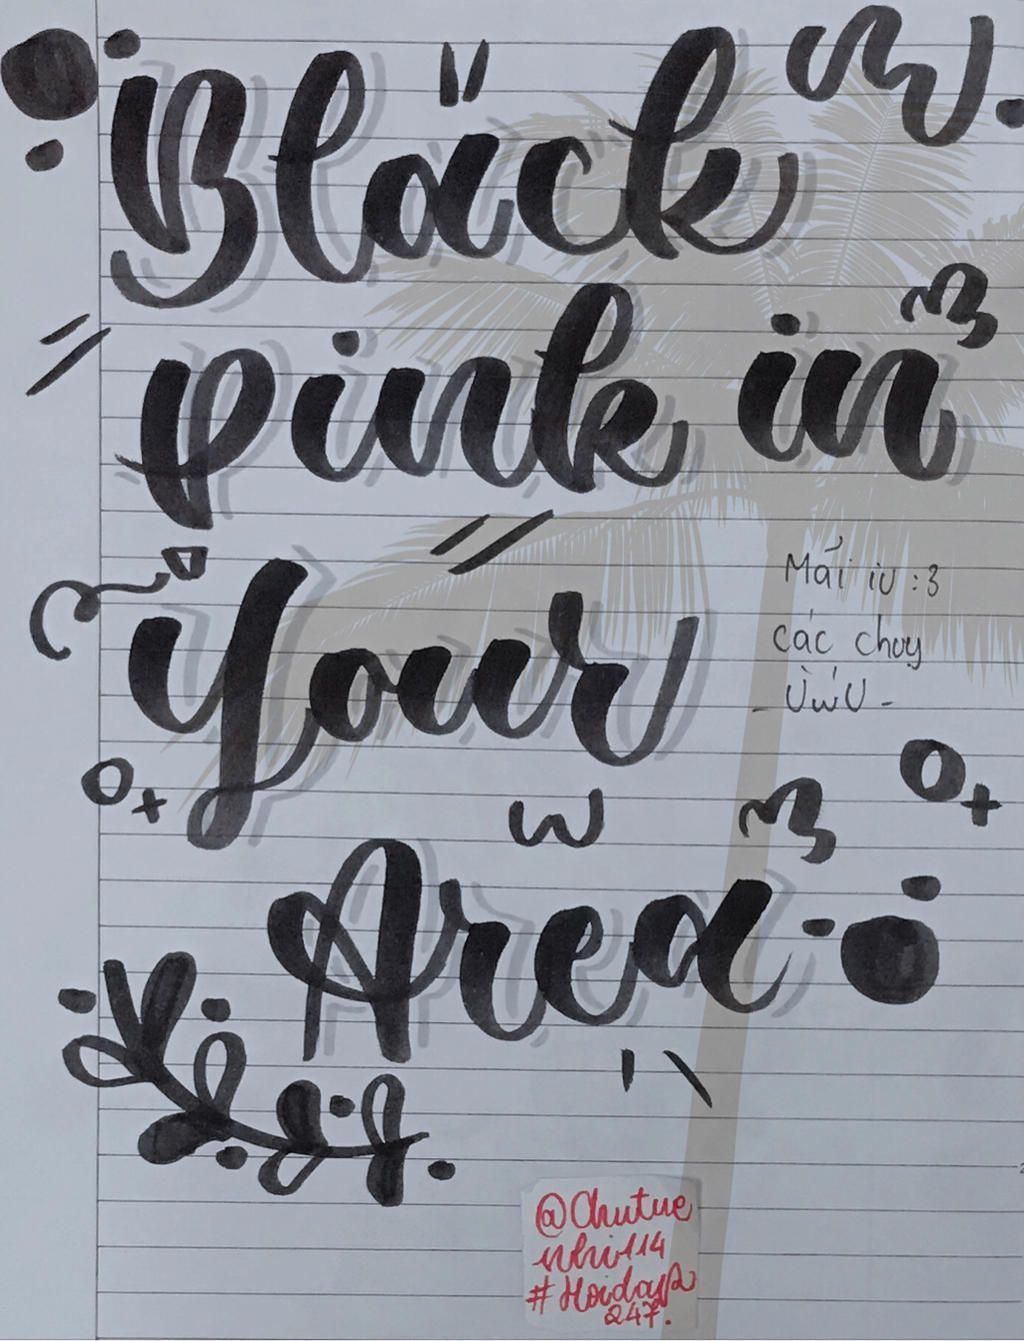 Black
pink in
Your
Area
Mãi iu :3
các choy
- ÙwÚ -
@Chutue
nhi114
#Hoidap
247.